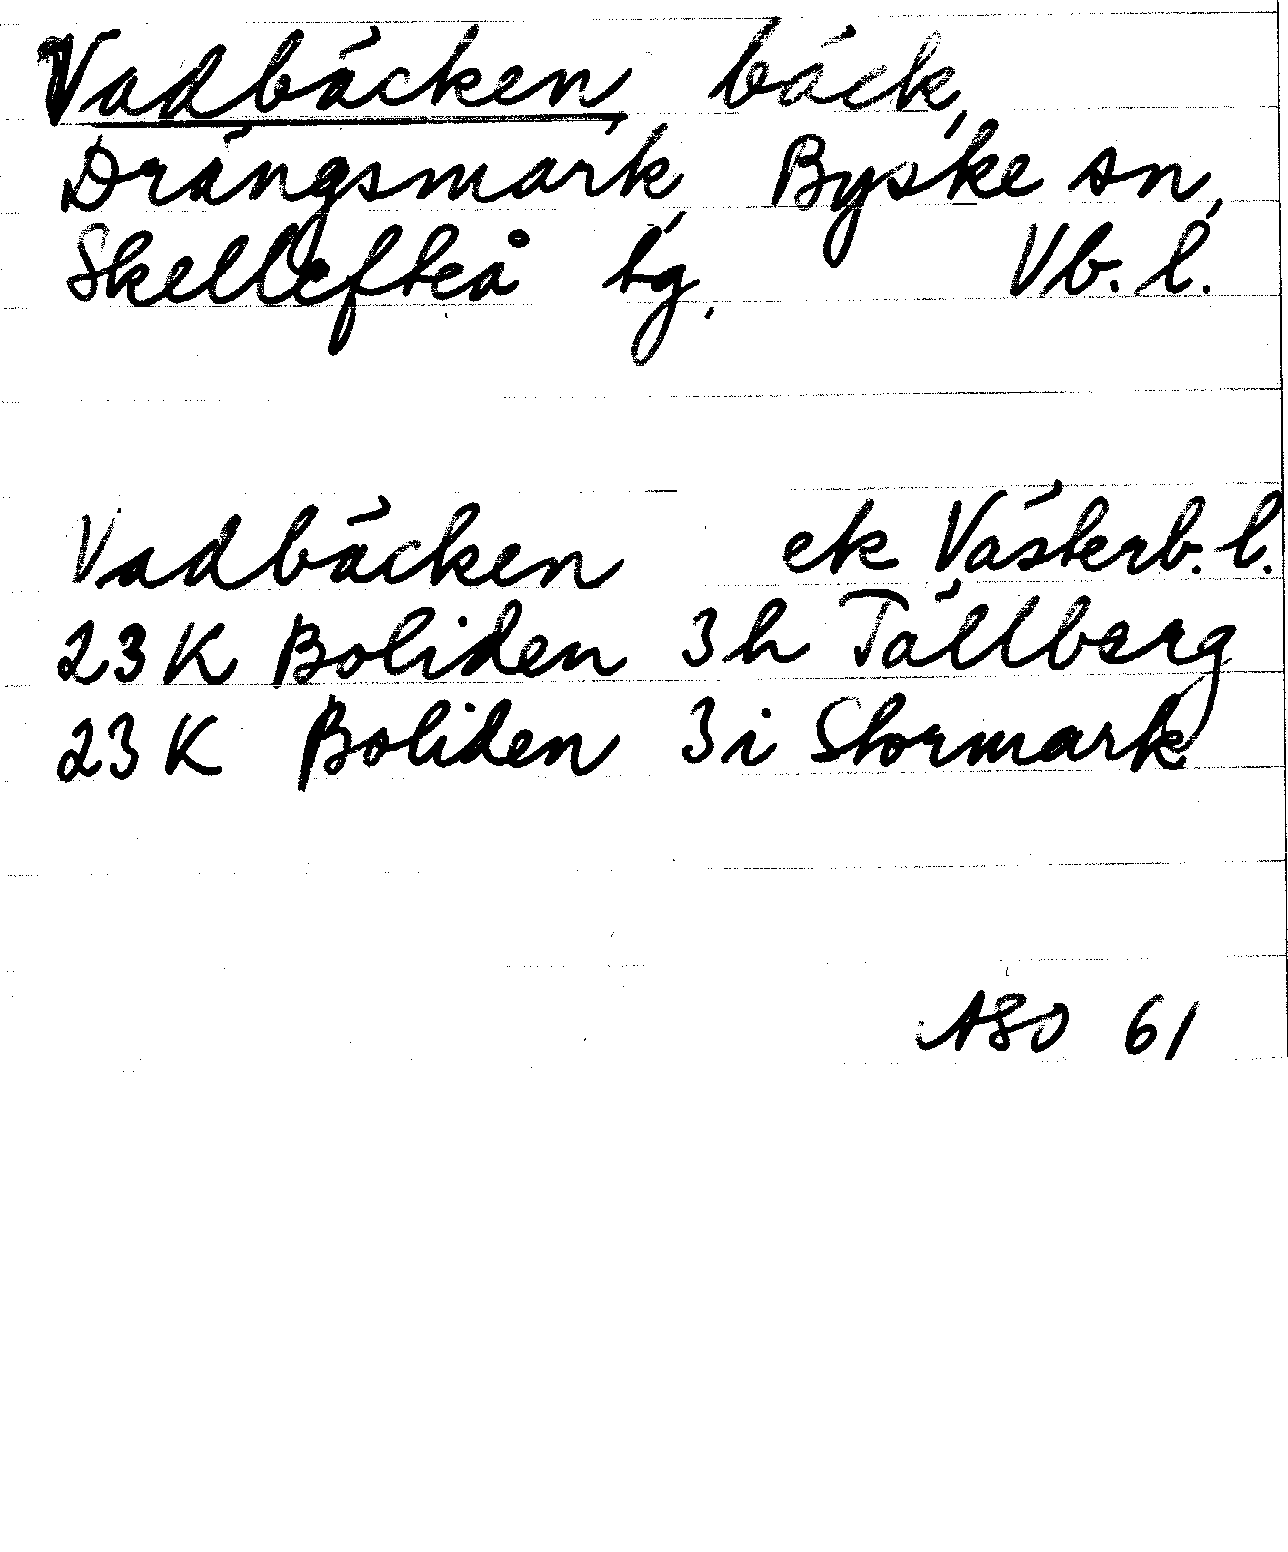 Vadbäcken, bäck,
Drängsmark, Byske sn,
Skellefteå tg, Vb. l.
Vadbäcken ek Västerb. l.
23 K Boliden 3 h Tällberg
23 K Boliden 3 i Stormark
ASO 61